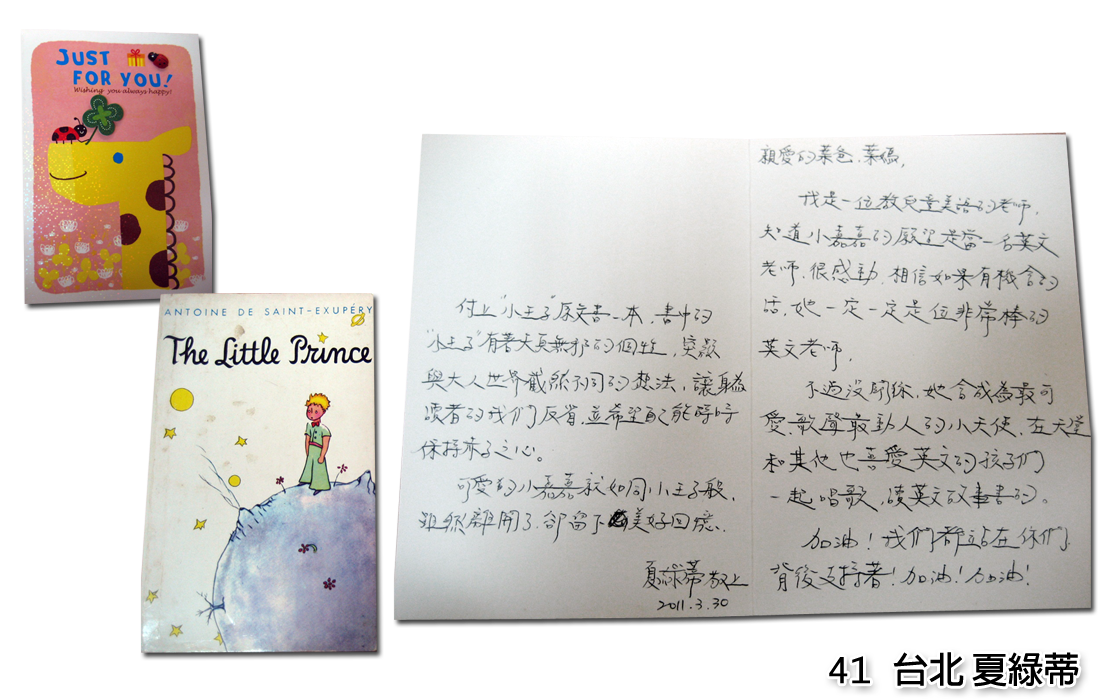 JUST
FOR YOU!
Wishing you always happy!
ANTOINE DE SAINT-EXUPÉRY
The Little Prince
親愛的葉爸、葉媽,
我是一位教兒童美語的老師,
知道小嘉嘉的願望是當一名英文
老師,很感動,相信如果有機會的
話,她一定一定是位非常棒的
英文老師,
不過沒關係,她會成為最可
愛、歌聲最動人的小天使,在天堂
和其他也喜愛英文的孩子們
一起唱歌,讀英文故事書的。
加油!我們都站在你們
背後支持著!加油!加油!
付上"小王子"原文書一本,書中的
"小王子"有著天真無邪的個性,突顯
與大人世界截然不同的想法,讓身為
讀者的我們反省,並希望自己能時時
保持赤子之心。
可愛的小嘉嘉就如同小王子般,
雖然離開了,卻留下美好回憶.
夏綠蒂敬上
2011.3.30
41 台北 夏綠蒂